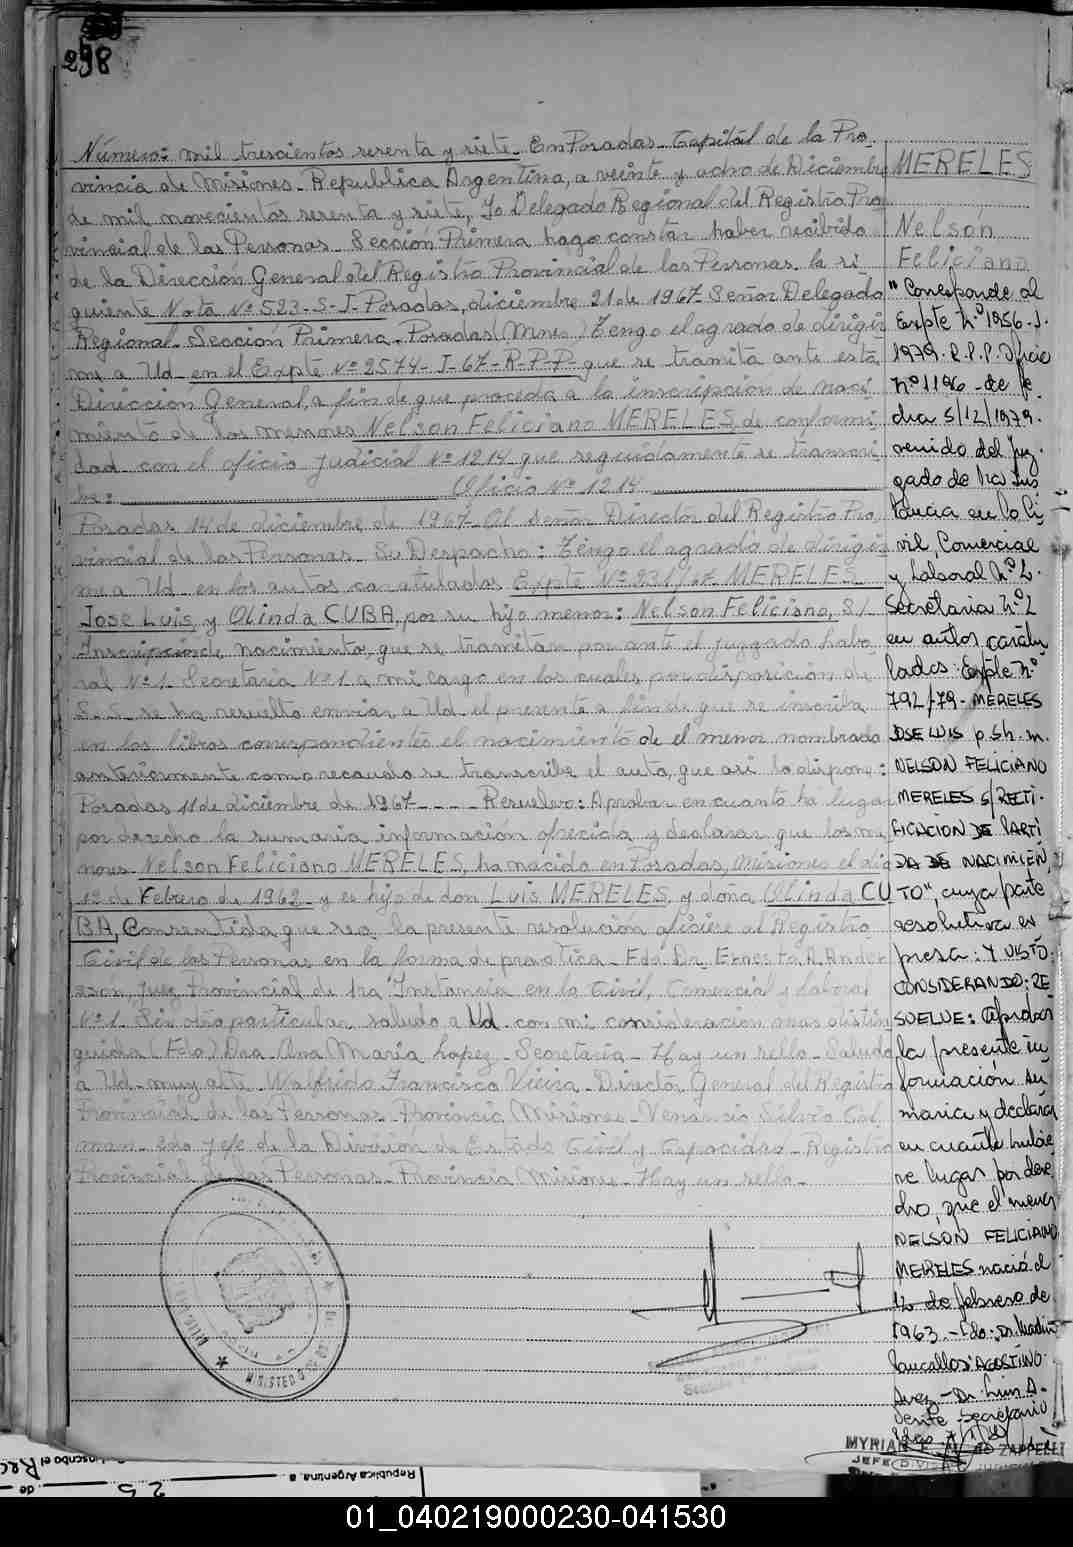 298
Número: mil trescientos sesenta y siete. En Posadas. Capital de la Pro
vincia de Misiones. Republica Argentina, a veinte y ocho de Diciembre
de mil novecientos sesenta y siete, Yo Delegado Regional del Registro Pro
vincial de las Personas. Sección Primera hago constar haber recibido
de la Dirección General del Registro Provincial de las Personas. la si
guiente Nota Nº 523-S-I-Posadas, diciembre 21 de 1967. Señor Delegado
Regional. Sección Primera. Posadas (Mnes.) Tengo el agrado de dirigir
me a Ud. en el Expte Nº 2574-I-67-R-P-P- que se tramita ante esta
Direccion General, a fin de que proceda a la inscripción de naci
miento de los menores Nelson Feliciano MERELES, de conformi
dad con el oficio judicial Nº 1214 que seguidamente se transcri
be: Oficio Nº 1214
Posadas 14 de diciembre de 1967. Al señor Director del Registro Pro
vincial de las Personas. Su Despacho: Tengo el agrado de dirigir
me a Ud. en los autos caratulados Expte Nº 231/67 MERELES
Jose Luis, y Olinda CUBA, por su hijo menor: Nelson Feliciano, S/.
Inscripción de nacimiento, que se tramitan por ante el juzgado labo
ral Nº 1. Secretaria Nº 1 a mi cargo en los cuales por disposición de
S.S. se ha resuelto enviar a Ud. el presente a fin de que se inscriba
en los libros correspondientes el nacimiento de el menor nombrado
anteriormente como recaudo se transcribe el auto, que asi lo dispone:
Posadas 11 de diciembre de 1967---- Resuelvo: Aprobar en cuanto ha lugar
por derecho la sumaria información ofrecida y declarar que los me
nores Nelson Feliciano MERELES, ha nacido en Posadas, Misiones el dia
12 de Febrero de 1962 y es hijo de don Luis MERELES y doña Olinda CU
BA, Consentida que sea la presente resolución oficiese al Registro
Civil de las Personas en la forma de practica. Fdo Dr. Ernesto A. Ander
sson, Juez Provincial de 1ra Instancia en lo Civil, Comercial y Laboral
Nº 1. Sin otro particular saludo a Ud. con mi consideración mas distin
guida (Fdo) Dra. Ana Maria Lopez. Secretaria. Hay un sello. Saludo
a Ud. muy atte. Walfrido Francisco Vieira. Director General del Registro
Provincial de las Personas. Provincia Misiones. Venancio Silvio Col
man. Jefe de la División de Estado Civil y Capacidad. Registro
Provincial de las Personas. Provincia Misiones. Hay un sello.
MERELES
Nelson
Feliciano
"Corresponde al
Expte Nº 1956-I-
1979. R.P.P. Oficio
Nº 1196 - de fe
cha 5/12/1979.
venido del Juz-
gado de 1ra Ins
tancia en lo Ci-
vil, Comercial
y Laboral Nº 2.
Secretaria Nº 2
en autos caratu
lados: Expte Nº
792/79 - MERELES
JOSE LUIS p.s.h.m.
NELSON FELICIANO
MERELES S/RECTI-
FICACION DE PARTI
DA DE NACIMIEN
TO", cuya parte
resolutiva ex
presa: Y VISTO:
CONSIDERANDO: RE
SUELVE: Aprobar
la presente in
formación su
maria y declarar
en cuanto hubie
re lugar por dere
cho, que el menor
NELSON FELICIANO
MERELES nació el
12 de febrero de
1963.- Fdo: Dr.
AGOSTINO.
Juez - Dr. Luis A.
Vente Secretario
MYRIAN ZAPPELLI
JEFE DIVISION
Republica Argentina, a
25 de
01_040219000230-041530